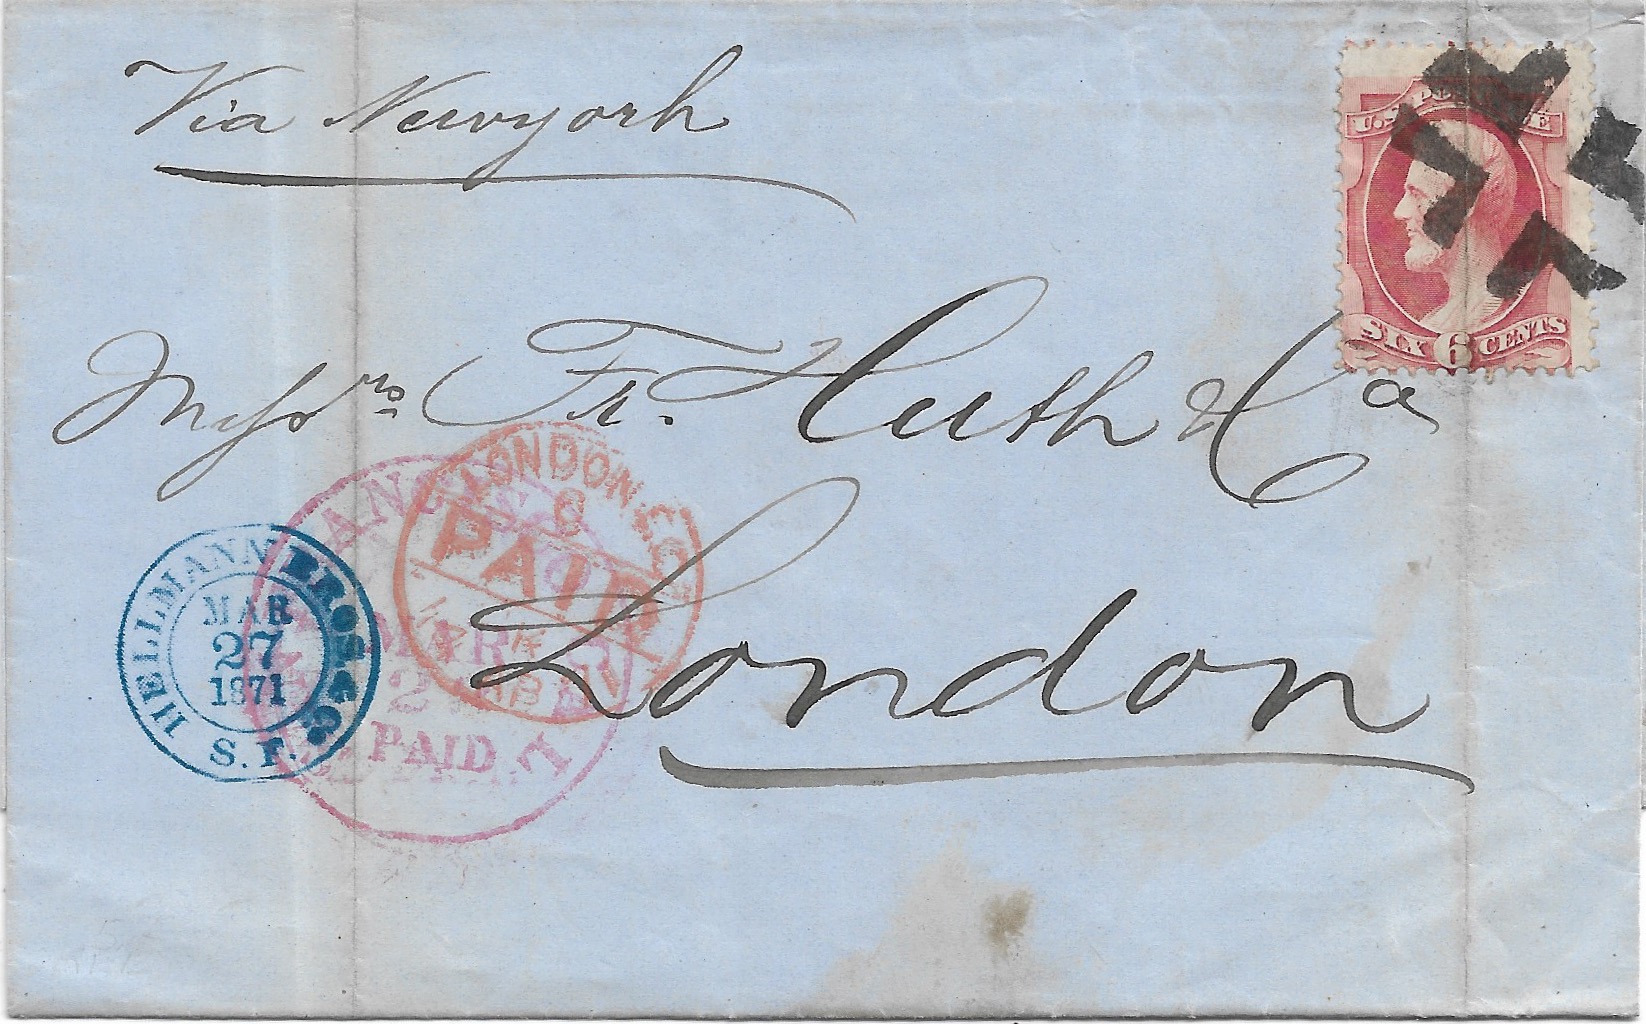 Via Newyork
U.S. POSTAGE
SIX 6 CENTS
Messrs. Fr. Huth & Ca
London
HELLMANN BROS & Co
MAR
27
1871
S. F.
LONDON. E.C
8
PAID
MAR
2
PAID